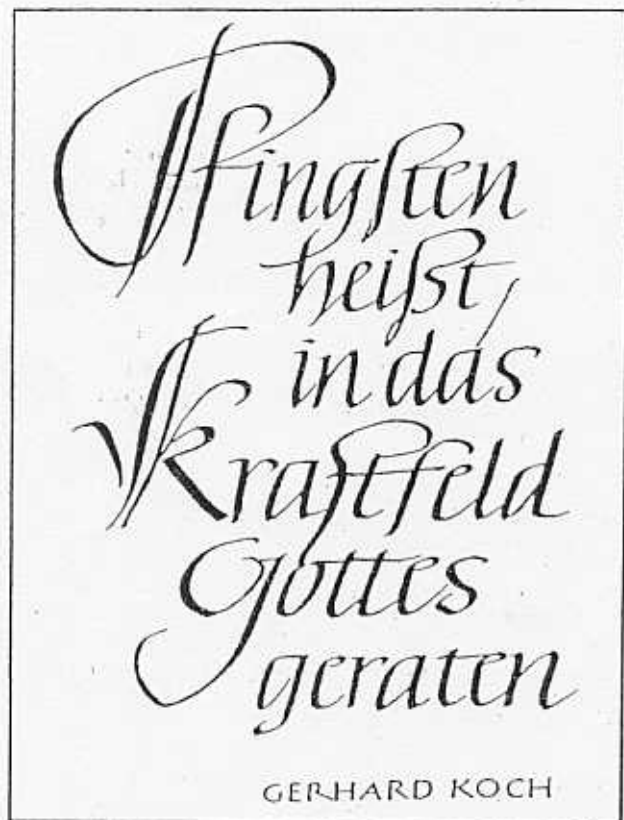 Pfingsten
heißt,
in das
Kraftfeld
Gottes
geraten
GERHARD KOCH